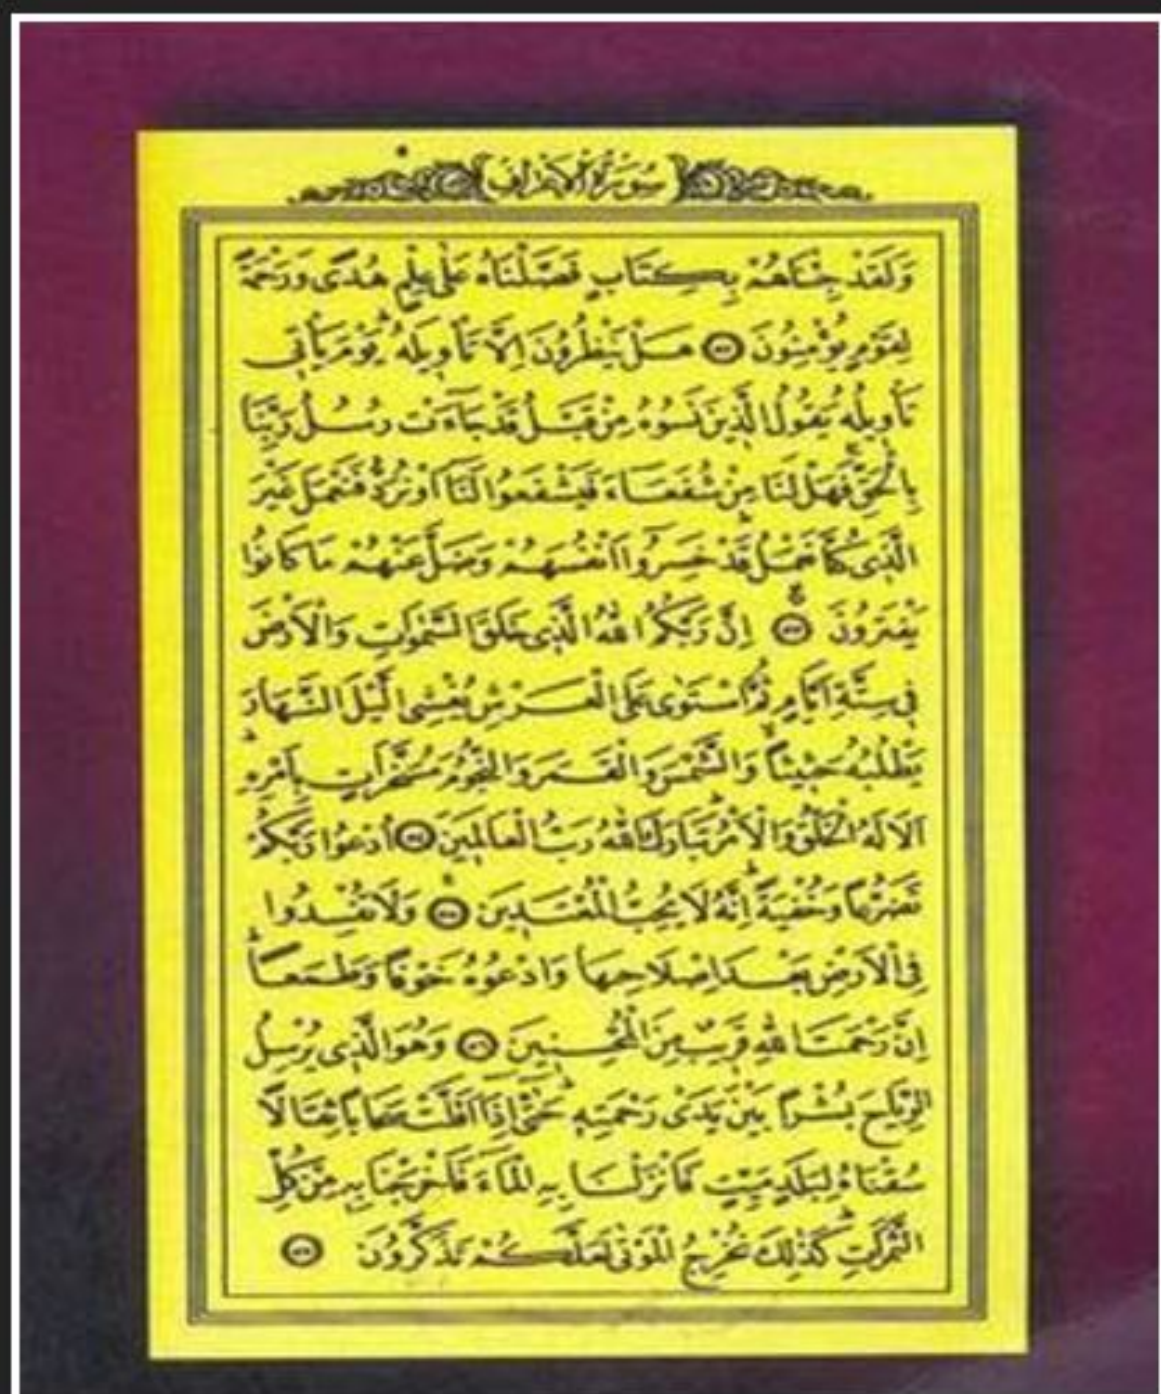 سُورَةُ الْاَعْرَافِ
وَلَقَدْ جِئْنَاهُمْ بِكِتَابٍ فَصَّلْنَاهُ عَلٰى عِلْمٍ هُدًى وَرَحْمَةً
لِقَوْمٍ يُؤْمِنُونَ ﴿٥٢﴾ هَلْ يَنْظُرُونَ اِلَّا تَأْوِيلَهُ يَوْمَ يَأْتِي
تَأْوِيلُهُ يَقُولُ الَّذِينَ نَسُوهُ مِنْ قَبْلُ قَدْ جَآءَتْ رُسُلُ رَبِّنَا
بِالْحَقِّ فَهَلْ لَنَا مِنْ شُفَعَآءَ فَيَشْفَعُوا لَنَآ اَوْ نُرَدُّ فَنَعْمَلَ غَيْرَ
الَّذِى كُنَّا نَعْمَلُ قَدْ خَسِرُوٓا اَنْفُسَهُمْ وَضَلَّ عَنْهُمْ مَا كَانُوا
يَفْتَرُونَ ﴿٥٣﴾ اِنَّ رَبَّكُمُ اللّٰهُ الَّذِى خَلَقَ السَّمٰوَاتِ وَالْاَرْضَ
فِى سِتَّةِ اَيَّامٍ ثُمَّ اسْتَوٰى عَلَى الْعَرْشِ يُغْشِى الَّيْلَ النَّهَارَ
يَطْلُبُهُ حَثِيثًا وَالشَّمْسَ وَالْقَمَرَ وَالنُّجُومَ مُسَخَّرَاتٍ بِاَمْرِهِ
اَلَا لَهُ الْخَلْقُ وَالْاَمْرُ تَبَارَكَ اللّٰهُ رَبُّ الْعَالَمِينَ ﴿٥٤﴾ اُدْعُوا رَبَّكُمْ
تَضَرُّعًا وَخُفْيَةً اِنَّهُ لَا يُحِبُّ الْمُعْتَدِينَ ﴿٥٥﴾ وَلَا تُفْسِدُوا
فِى الْاَرْضِ بَعْدَ اِصْلَاحِهَا وَادْعُوهُ خَوْفًا وَطَمَعًا
اِنَّ رَحْمَتَ اللّٰهِ قَرِيبٌ مِنَ الْمُحْسِنِينَ ﴿٥٦﴾ وَهُوَ الَّذِى يُرْسِلُ
الرِّيَاحَ بُشْرًا بَيْنَ يَدَىْ رَحْمَتِهِ حَتّٰٓى اِذَآ اَقَلَّتْ سَحَابًا ثِقَالًا
سُقْنَاهُ لِبَلَدٍ مَيِّتٍ فَاَنْزَلْنَا بِهِ الْمَآءَ فَاَخْرَجْنَا بِهِ مِنْ كُلِّ
الثَّمَرَاتِ كَذٰلِكَ نُخْرِجُ الْمَوْتٰى لَعَلَّكُمْ تَذَكَّرُونَ ﴿٥٧﴾